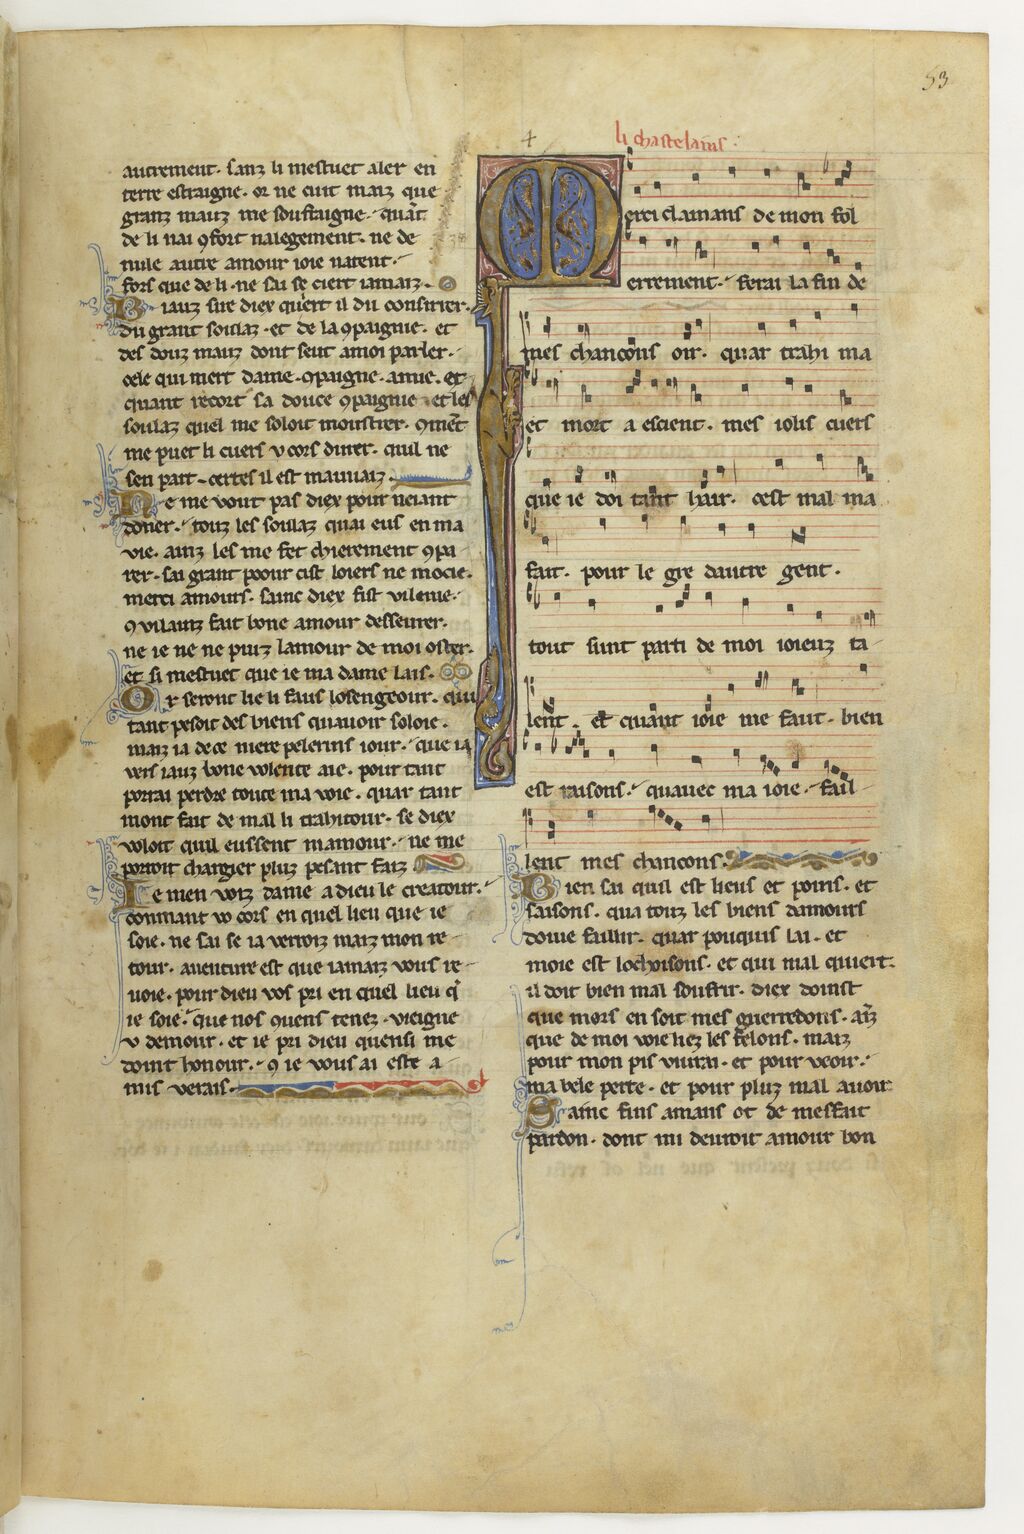 53
4
li chastelains
autrement. sanz li mestuet aler en
terre estraigne. or ne cuit maiz que
granz mauz me souffraigne. quāt
de li nai ꝯfort nalegement. ne de
nule autre amour ioie natent.
fors que de li. ne sai se ciert iamaiz.
Biauz sire diex quert il du consirrer.
du grant soulaz. et de la ꝯpaignie. et
des douz mauz dont seut a moi parler.
cele qui mert dame. ꝯpaigne. amie. et
quant recort sa douce ꝯpaignie et les
soulaz quel me soloit moustrer. ꝯmēt
me puet li cuers v cors durer. quil ne
sen part. certes il est mauuaiz.
Ne me vout pas diex pour neiant
doner. touz les soulaz quai eus en ma
vie. ainz les me fet chierement ꝯpa
rer. sai grant poour cist loiers ne mocie.
merci amours. sainc diex fist vilenie.
ꝯ vilainz fait bone amour desseurer.
ne ie ne ne puiz lamour de moi oster.
et si mestuet que ie ma dame lais.
Or seront lie li faus losengeour. qui
tant pesoit des biens quauoir soloie.
maiz ia de ce niere pelerins iour. que ia
vers iauz bone volente aie. pour tant
porrai perdre toute ma voie. quar tant
mont fait de mal li trahitour. se diex
voloit quil eussent mamour. ne me
porroit chargier pluz pesant faiz
Ie men voiz dame a dieu le creatour.
conmant vo cors en quel lieu que ie
soie. ne sai se ia verroiz maiz mon re
tour. auenture est que iamaiz vous re
uoie. pour dieu vos pri en quel lieu q̄
ie soie. que nos ꝯuens tenez. vieigne
v demour. et ie pri dieu quensi me
doint honour. ꝯ ie vous ai este a
mis verais.
Merci clamans de mon fol
errement. ferai la fin de
mes chancons oir. quar trahi ma
et mort a escient. mes iolis cuers
que ie doi tant hair. cest mal ma
fait. pour le gre dautre gent.
tout sunt parti de moi ioieuz ta
lent. et quant ioie me faut. bien
est raisons. quauec ma ioie. fail
lent mes chancons.
Bien sai quil est lieus et poins. et
saisons. qua touz les biens damours
doiue faillir. quar pourquis lai. et
moie est lochoisons. et qui mal quiert.
il doit bien mal souffrir. diex doinst
que mors en soit mes guerredons. aīz
que de moi voie liez les felons. maiz
pour mon pis viurai. et pour veoir.
ma bele perte. et pour pluz mal auoir
Sainc fins amans ot de mesfait
pardon. dont mi deuroit amour bon